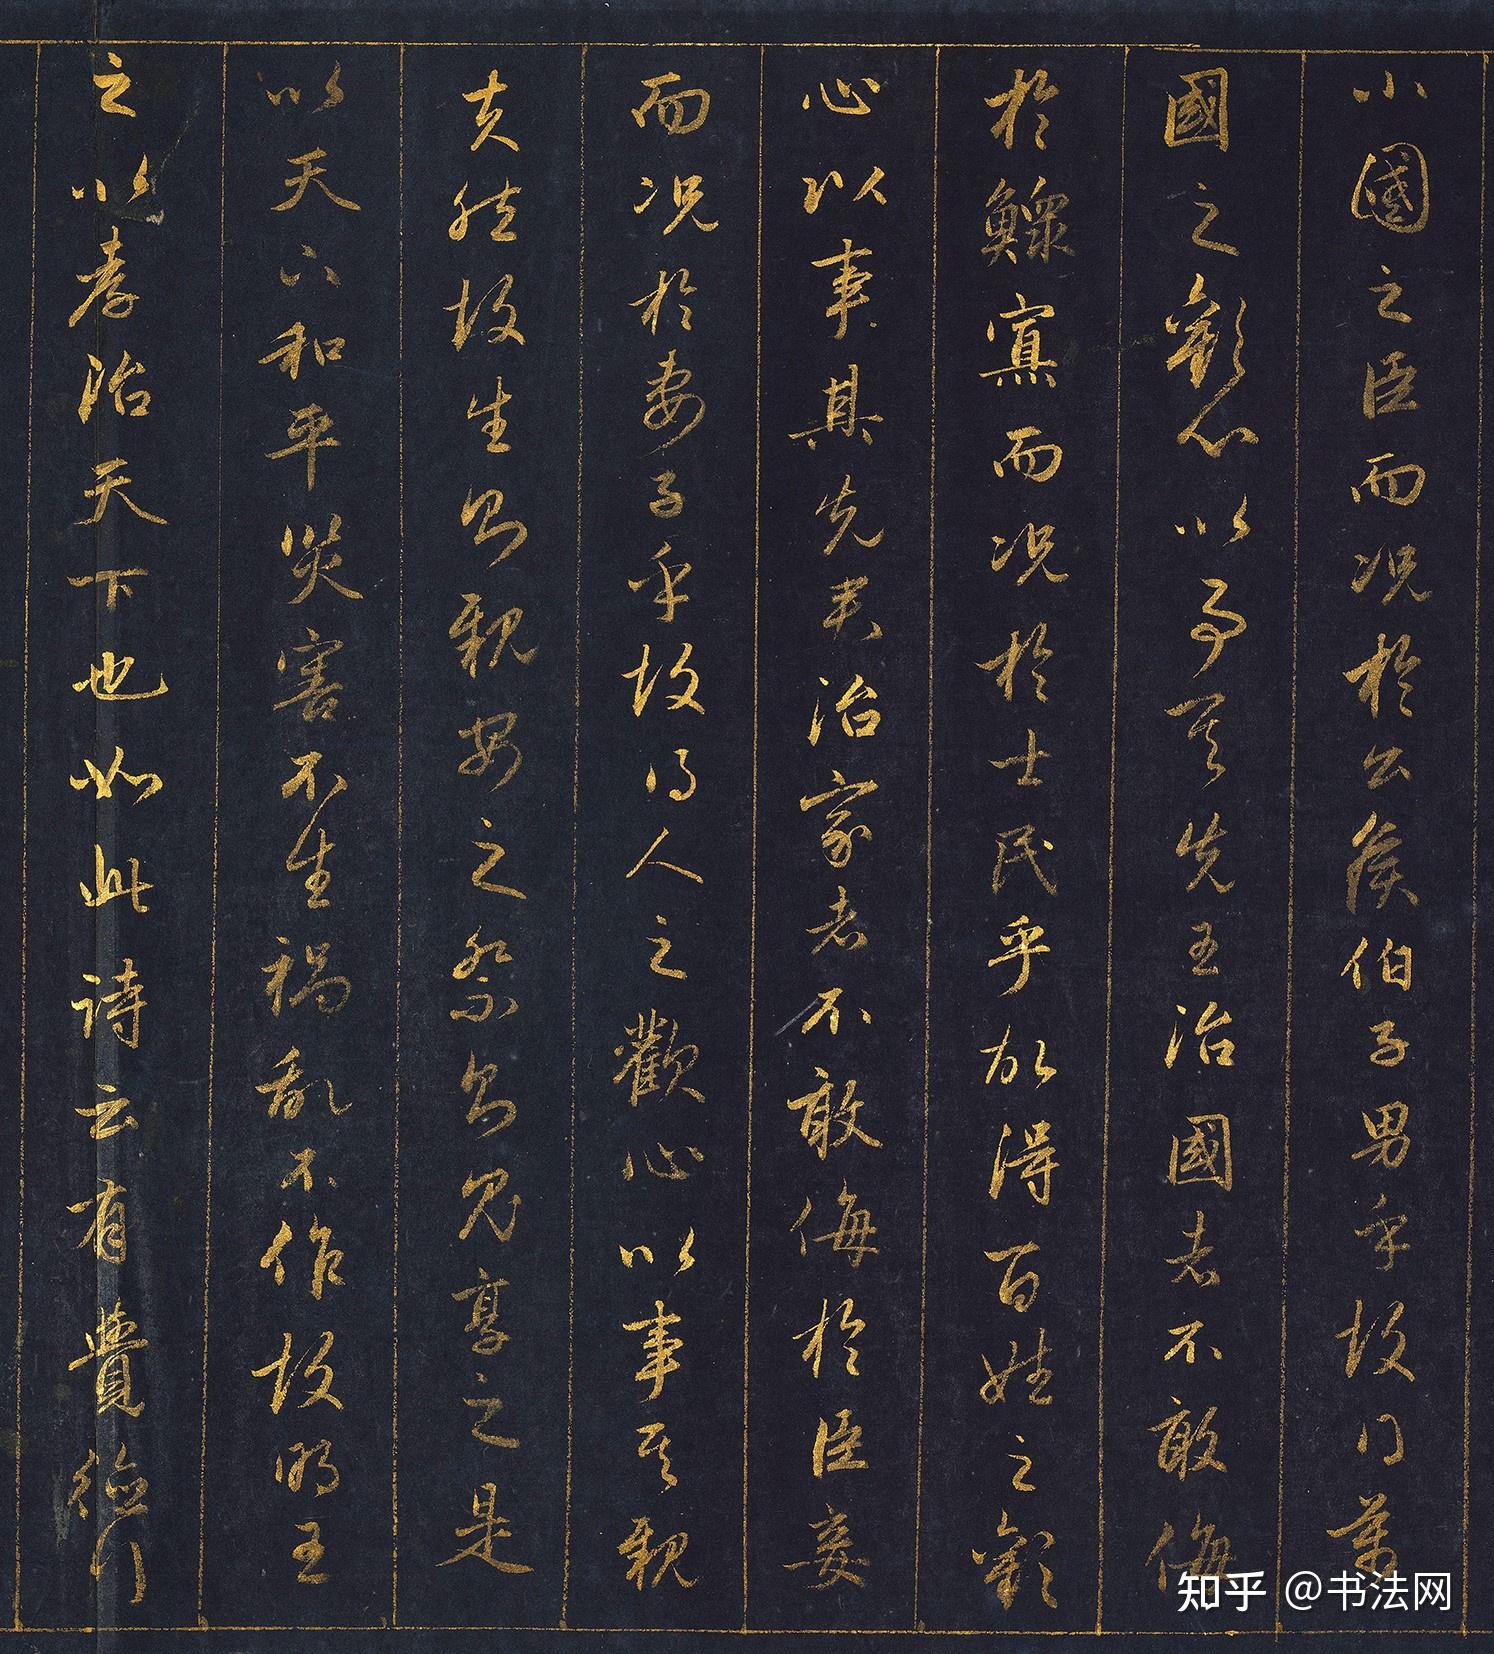 小國之臣而况於公侯伯子男乎故得萬
國之歡心以事其先王治國者不敢侮
於鰥寡而况於士民乎故得百姓之歡
心以事其先君治家者不敢侮於臣妾
而况於妻子乎故得人之歡心以事其親
夫然故生則親安之祭則鬼享之是
以天下和平災害不生禍亂不作故明王
之以孝治天下也如此詩云有覺德行
知乎 @书法网